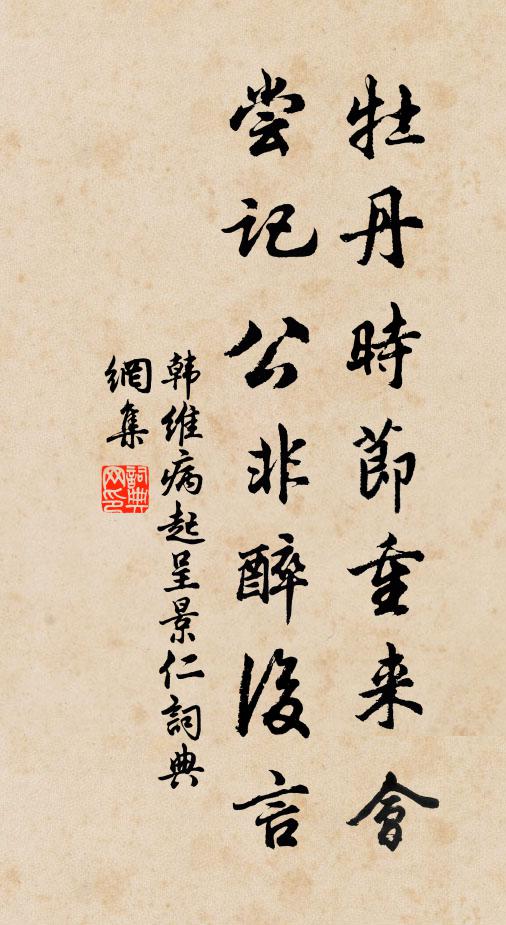 牡丹時節重来會
嘗記公非醉後言
韩維病起呈景仁詞典
網集
詞典網印